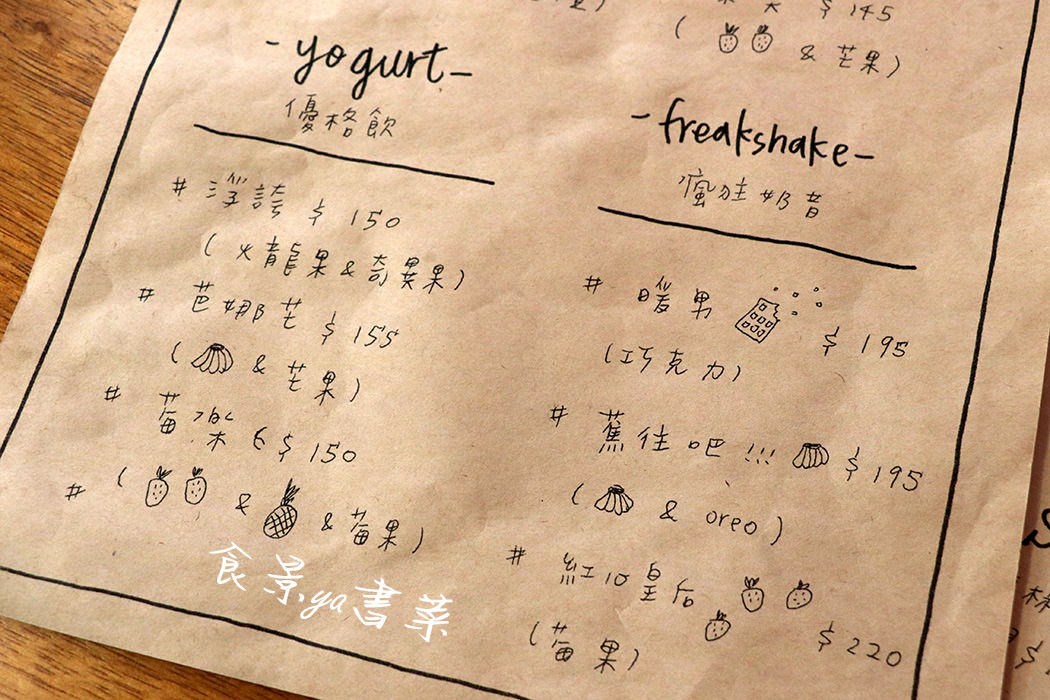 $145
( & 芒果)
-yogurt-
優格飲
# 浮誇 $ 150
(火龍果 & 奇異果)
# 芭娜芒 $ 155
( & 芒果)
# 莓樂 $ 150
# ( & & 莓果)
-freakshake-
瘋狂奶昔
# 暖男 $ 195
(巧克力)
# 蕉往吧!!! $ 195
( & oreo)
# 紅心皇后
(莓果) $ 220
食景ya書菜